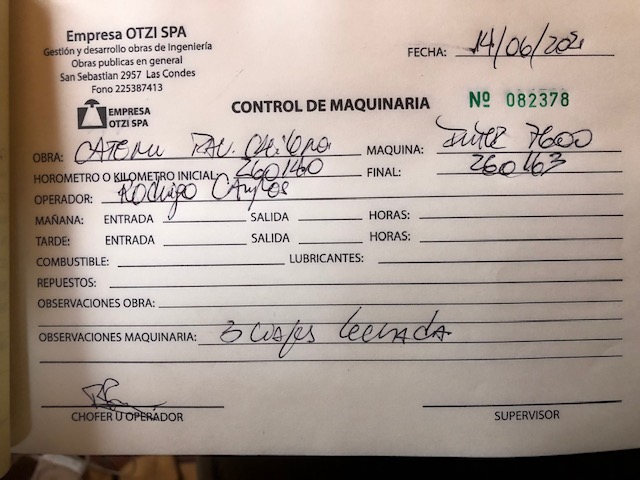 Empresa OTZI SPA
Gestión y desarrollo obras de Ingeniería
Obras publicas en general
San Sebastian 2957 Las Condes
Fono 225387413
FECHA: 14/06/2021
EMPRESA
OTZI SPA
CONTROL DE MAQUINARIA
Nº 082378
OBRA: MAQUINA: 7600
HOROMETRO O KILOMETRO INICIAL: 260140 FINAL: 260163
OPERADOR: Rodrigo Campos
MAÑANA: ENTRADA SALIDA HORAS:
TARDE: ENTRADA SALIDA HORAS:
COMBUSTIBLE: LUBRICANTES:
REPUESTOS:
OBSERVACIONES OBRA:
OBSERVACIONES MAQUINARIA: 3 viajes lechada
CHOFER U OPERADOR
SUPERVISOR